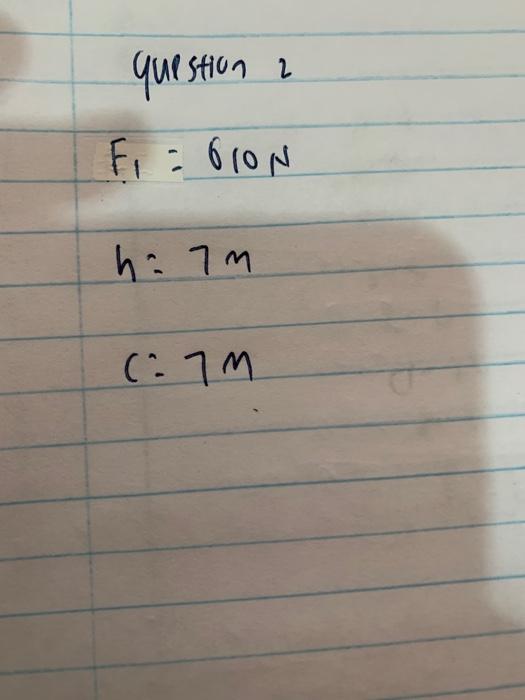 Question 2
F₁ = 610 N
h = 7 m
C = 7 m